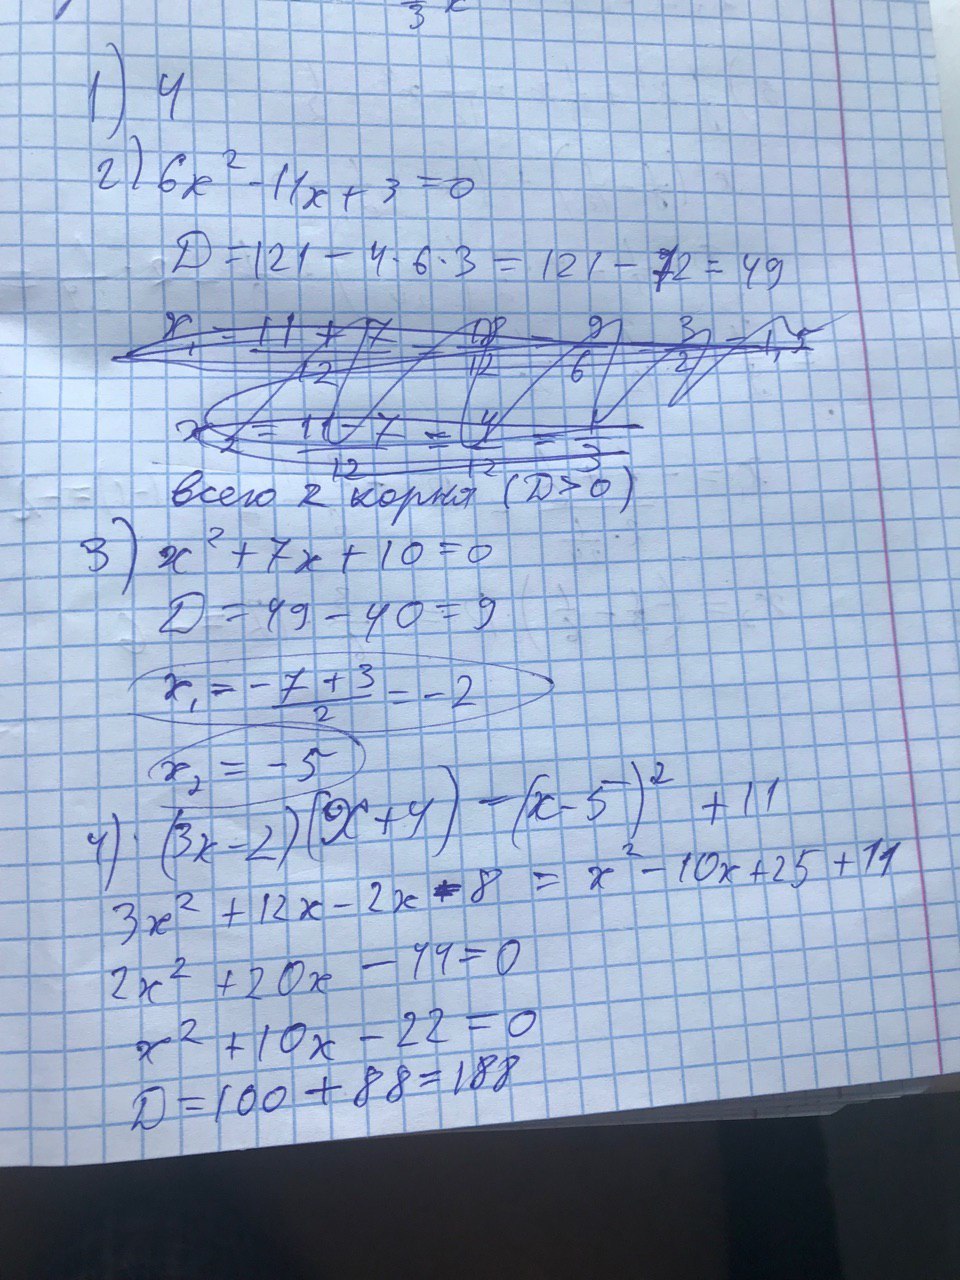 3 x
1) 4
2) 6x² - 11x + 3 = 0
D = 121 - 4·6·3 = 121 - 72 = 49
x₁ = (11 + 7)/12 = 18/12 = 9/6 = 3/2 = 1,5
x₂ = (11 - 7)/12 = 4/12 = 1/3
всего 2 корня (D > 0)
3) x² + 7x + 10 = 0
D = 49 - 40 = 9
x₁ = (-7 + 3)/2 = -2
x₂ = -5
4) (3x - 2)(x + 4) - (x - 5)² + 11
3x² + 12x - 2x - 8 = x² - 10x + 25 + 11
2x² + 20x - 44 = 0
x² + 10x - 22 = 0
D = 100 + 88 = 188